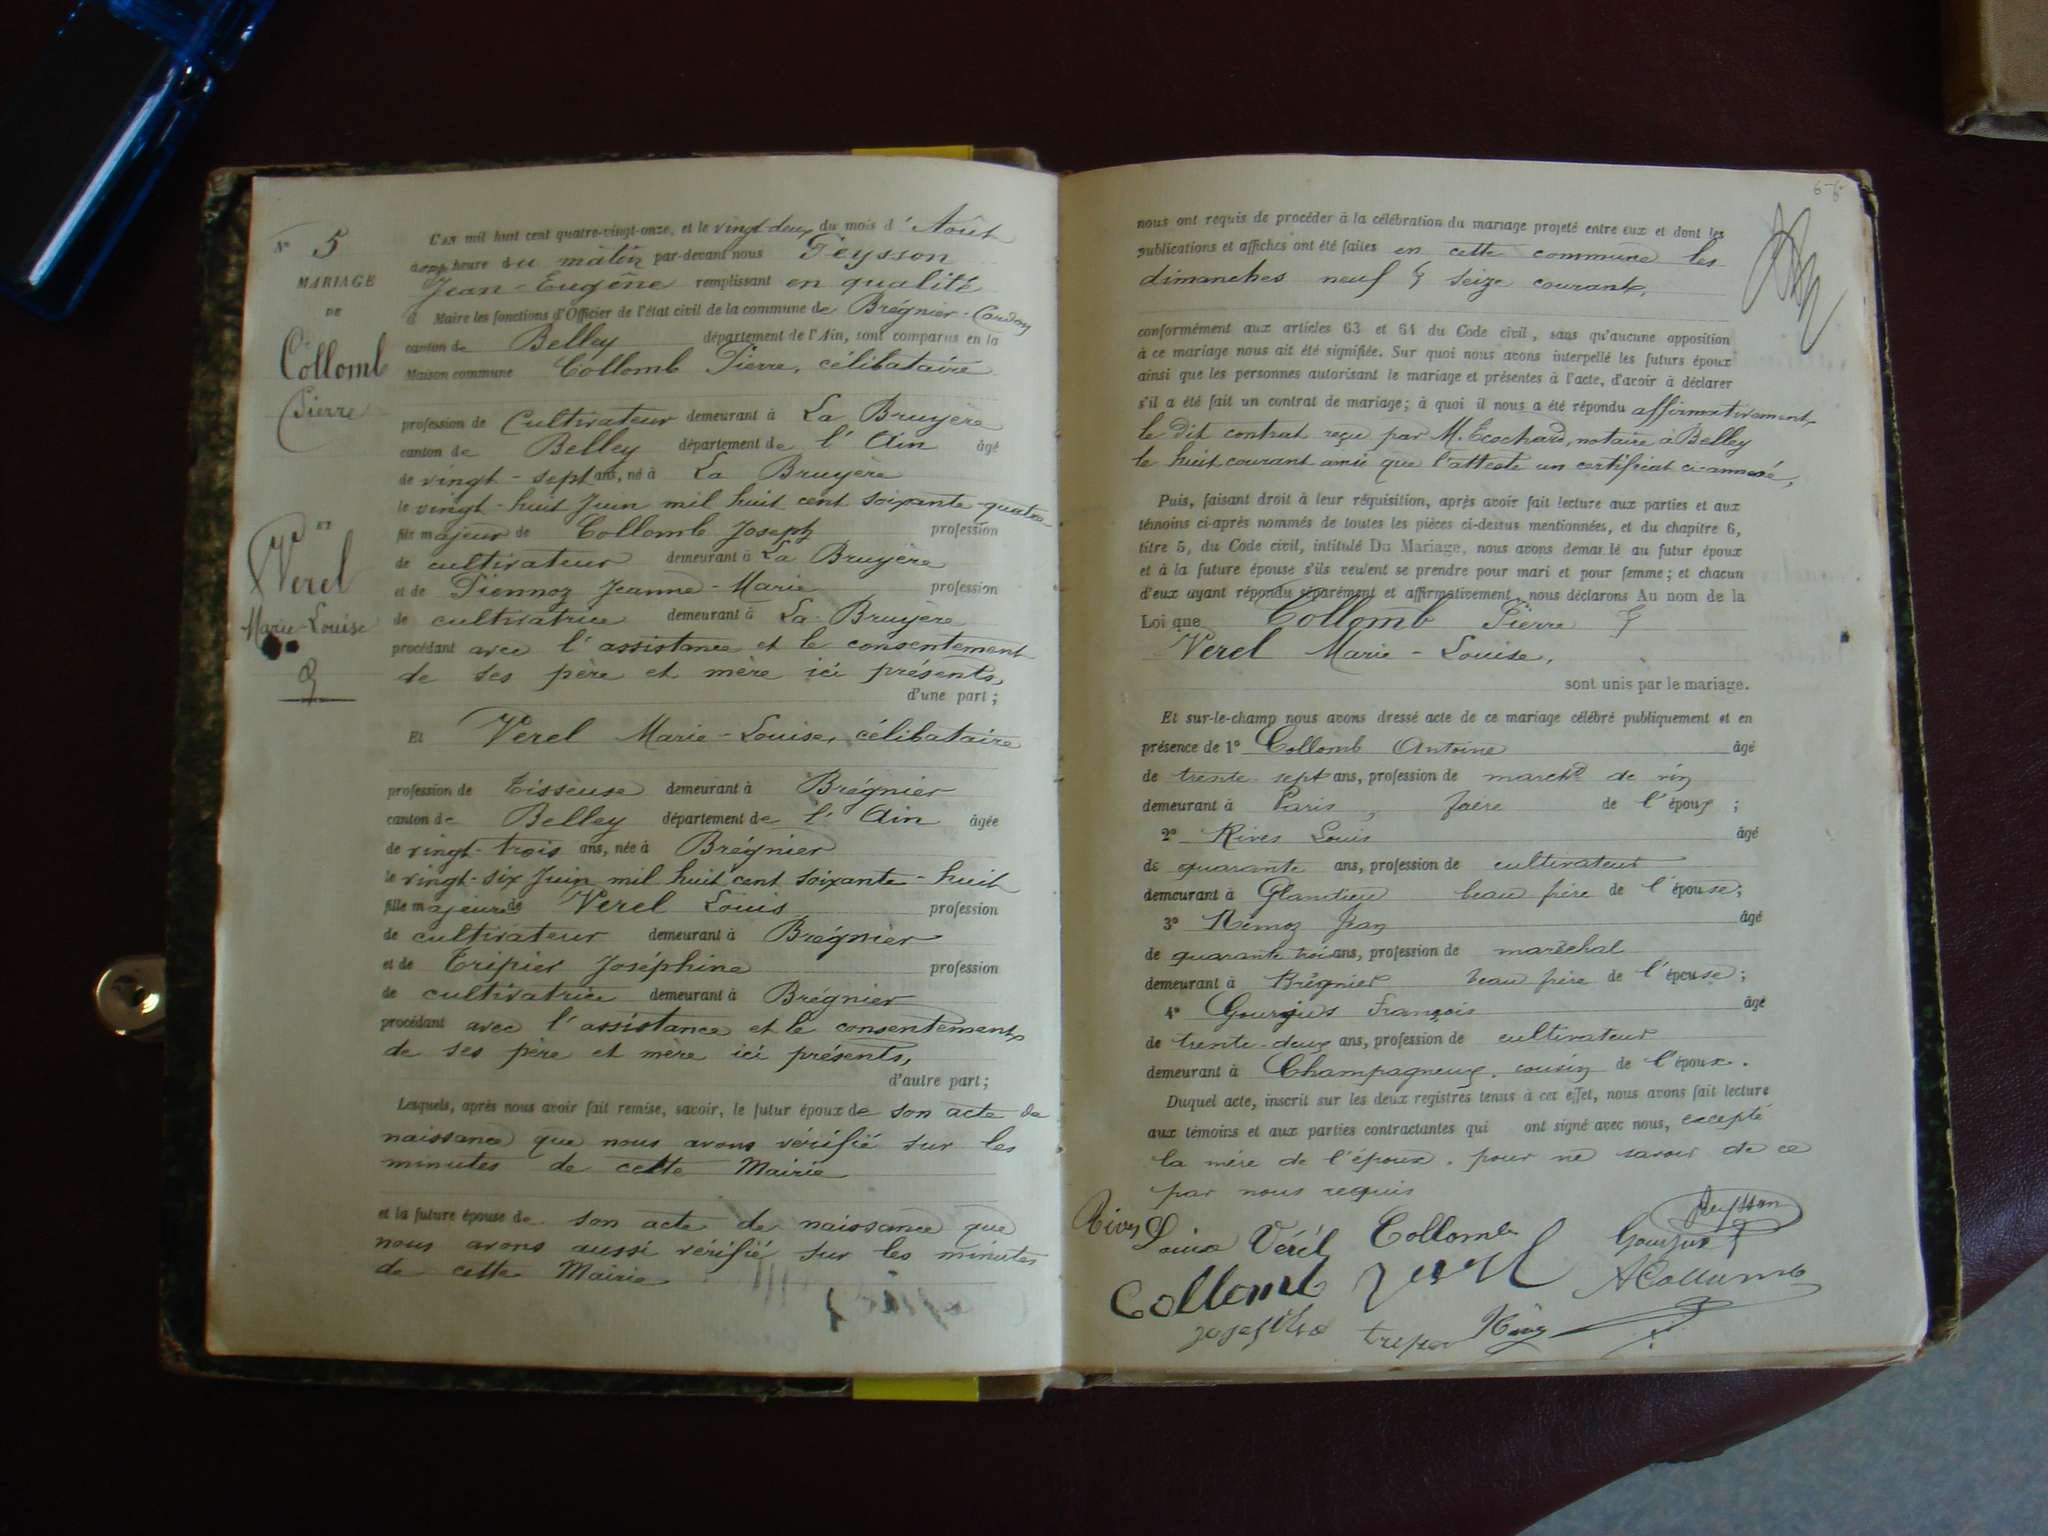 N° 5
MARIAGE
DE
Collomb
Pierre
ET
Verel
Marie-Louise
L'AN mil huit cent quatre-vingt-onze, et le vingt-deux du mois d'Août
heure du matin par-devant nous Peysson
Jean-Eugène remplissant en qualité
d Maire les fonctions d'Officier de l'état civil de la commune de Brégnier-Cordon
canton de Belley département de l'Ain, sont comparus en la
Maison commune Collomb Pierre, célibataire
profession de Cultivateur demeurant à La Bruyère
canton de Belley département de l'Ain âgé
de vingt-sept ans, né à La Bruyère
le vingt-huit Juin mil huit cent soixante-quatre
fils majeur de Collomb Joseph profession
de cultivateur demeurant à La Bruyère
et de Jeanne-Marie profession
de cultivatrice demeurant à La Bruyère
procédant avec l'assistance et le consentement
de ses père et mère ici présents,
d'une part;
Et Verel Marie-Louise, célibataire
profession de Tisseuse demeurant à Brégnier
canton de Belley département de l'Ain âgée
de vingt-trois ans, née à Brégnier
le vingt-six Juin mil huit cent soixante-huit
fille majeure de Verel Louis profession
de cultivateur demeurant à Brégnier
et de Tripier Joséphine profession
de cultivatrice demeurant à Brégnier
procédant avec l'assistance et le consentement
de ses père et mère ici présents,
d'autre part;
Lesquels, après nous avoir fait remise, savoir, le futur époux de son acte de
naissance que nous avons vérifié sur les
minutes de cette Mairie
et la future épouse de son acte de naissance que
nous avons aussi vérifié sur les minutes
de cette Mairie
nous ont requis de procéder à la célébration du mariage projeté entre eux et dont les
publications et affiches ont été faites en cette commune les
dimanches neuf & seize courant,
conformément aux articles 63 et 64 du Code civil, sans qu'aucune opposition
à ce mariage nous ait été signifiée. Sur quoi nous avons interpellé les futurs époux
ainsi que les personnes autorisant le mariage et présentes à l'acte, d'avoir à déclarer
s'il a été fait un contrat de mariage; à quoi il nous a été répondu affirmativement,
le dit contrat reçu par M. Ecochard, notaire à Belley
le huit courant ainsi que l'atteste un certificat ci-annexé,
Puis, faisant droit à leur réquisition, après avoir fait lecture aux parties et aux
témoins ci-après nommés de toutes les pièces ci-dessus mentionnées, et du chapitre 6,
titre 5, du Code civil, intitulé Du Mariage, nous avons demandé au futur époux
et à la future épouse s'ils veulent se prendre pour mari et pour femme; et chacun
d'eux ayant répondu séparément et affirmativement, nous déclarons Au nom de la
Loi que Collomb Pierre &
Verel Marie-Louise,
sont unis par le mariage.
Et sur-le-champ nous avons dressé acte de ce mariage célébré publiquement et en
présence de 1° Collomb Antoine âgé
de trente-sept ans, profession de march^d de vin
demeurant à Paris, frère de l'époux;
2° Rives Louis âgé
de quarante ans, profession de cultivateur
demeurant à Glandieu beau frère de l'épouse;
3° Nemoz Jean âgé
de quarante trois ans, profession de maréchal
demeurant à Brégnier beau frère de l'épouse;
4° Gourjus François âgé
de trente-deux ans, profession de cultivateur
demeurant à Champagneux, cousin de l'époux.
Duquel acte, inscrit sur les deux registres tenus à cet effet, nous avons fait lecture
aux témoins et aux parties contractantes qui ont signé avec nous, excepté
la mère de l'époux, pour ne savoir de ce
par nous requis
Peysson
Rives Louise Vérel Collomb Gourjux
Collomb Verel A Collomb